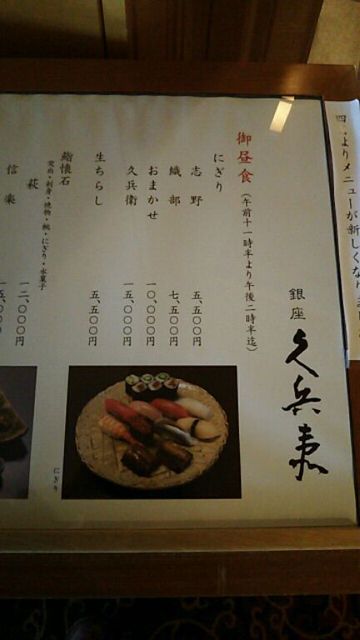 四月よりメニューが新しくなり
銀座 久兵衛
御昼食（午前十一時半より午後二時半迄）
にぎり
志野 五、五〇〇円
織部 七、五〇〇円
おまかせ 一〇、〇〇〇円
久兵衛 一五、〇〇〇円
生ちらし 五、五〇〇円
鮨懐石
突出・刺身・焼物・椀・にぎり・水菓子
萩 一二、〇〇〇円
信楽 一五、〇〇〇円
にぎり